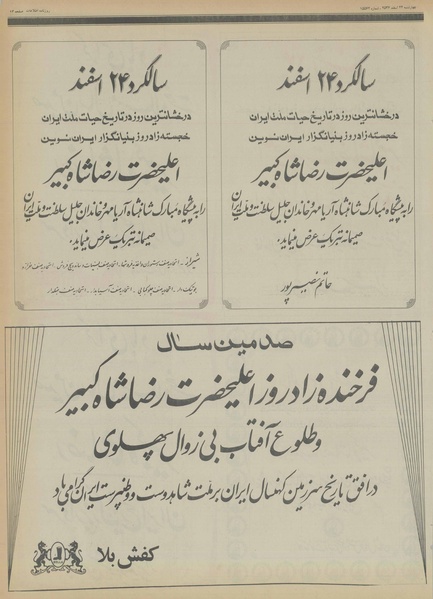 سالگرد ۲۴ اسفند
درخشانترین روز در تاریخ حیات ملت ایران
خجسته زادروز بنیانگزار ایران نوین
اعلیحضرت رضاشاه کبیر
را به پیشگاه مبارک شاهنشاه آریامهر و خاندان جلیل سلطنت و ملت ایران
صمیمانه تبریک عرض مینماید.
حاتم نصیرپور
سالگرد ۲۴ اسفند
درخشانترین روز در تاریخ حیات ملت ایران
خجسته زادروز بنیانگزار ایران نوین
اعلیحضرت رضاشاه کبیر
را به پیشگاه مبارک شاهنشاه آریامهر و خاندان جلیل سلطنت و ملت ایران
صمیمانه تبریک عرض مینماید.
صدمین سال
فرخنده زادروز اعلیحضرت رضاشاه کبیر
و طلوع آفتاب بی زوال پهلوی
در افق تاریخ سرزمین کهنسال ایران بر ملت شاهدوست و وطنپرست ایران گرامی باد
کفش بلا